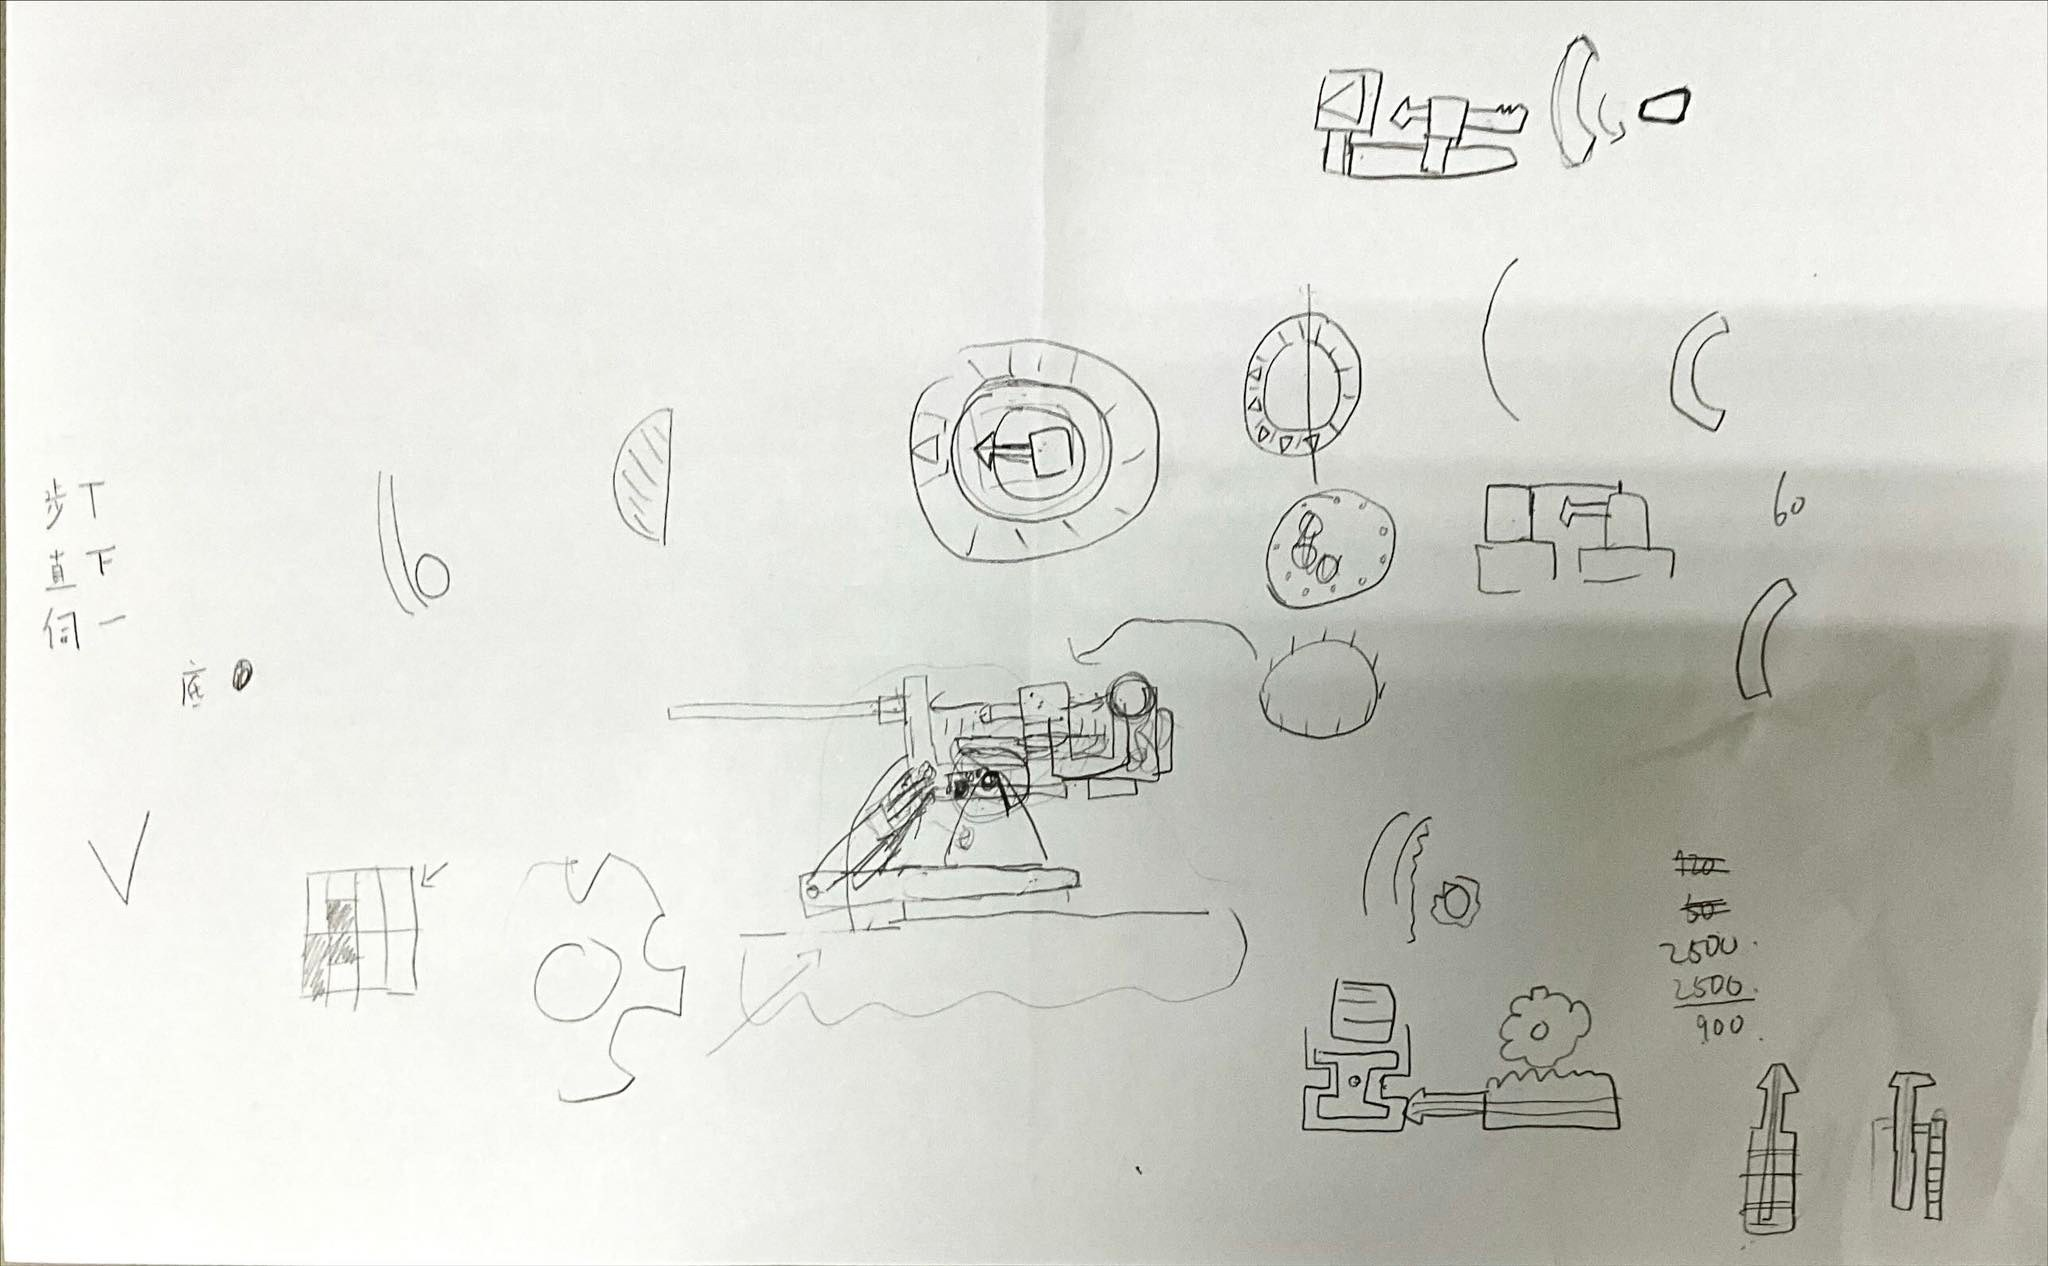 步下
直下
伺一
底
60
120
60
2500.
2500.
900.